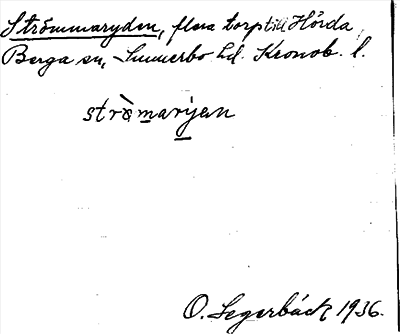 Strömmaryden, flera torp till Hörda,
Berga sn, Sunnerbo hd. Kronob. l.
strö̀marijen
O. Segerbäck 1936.